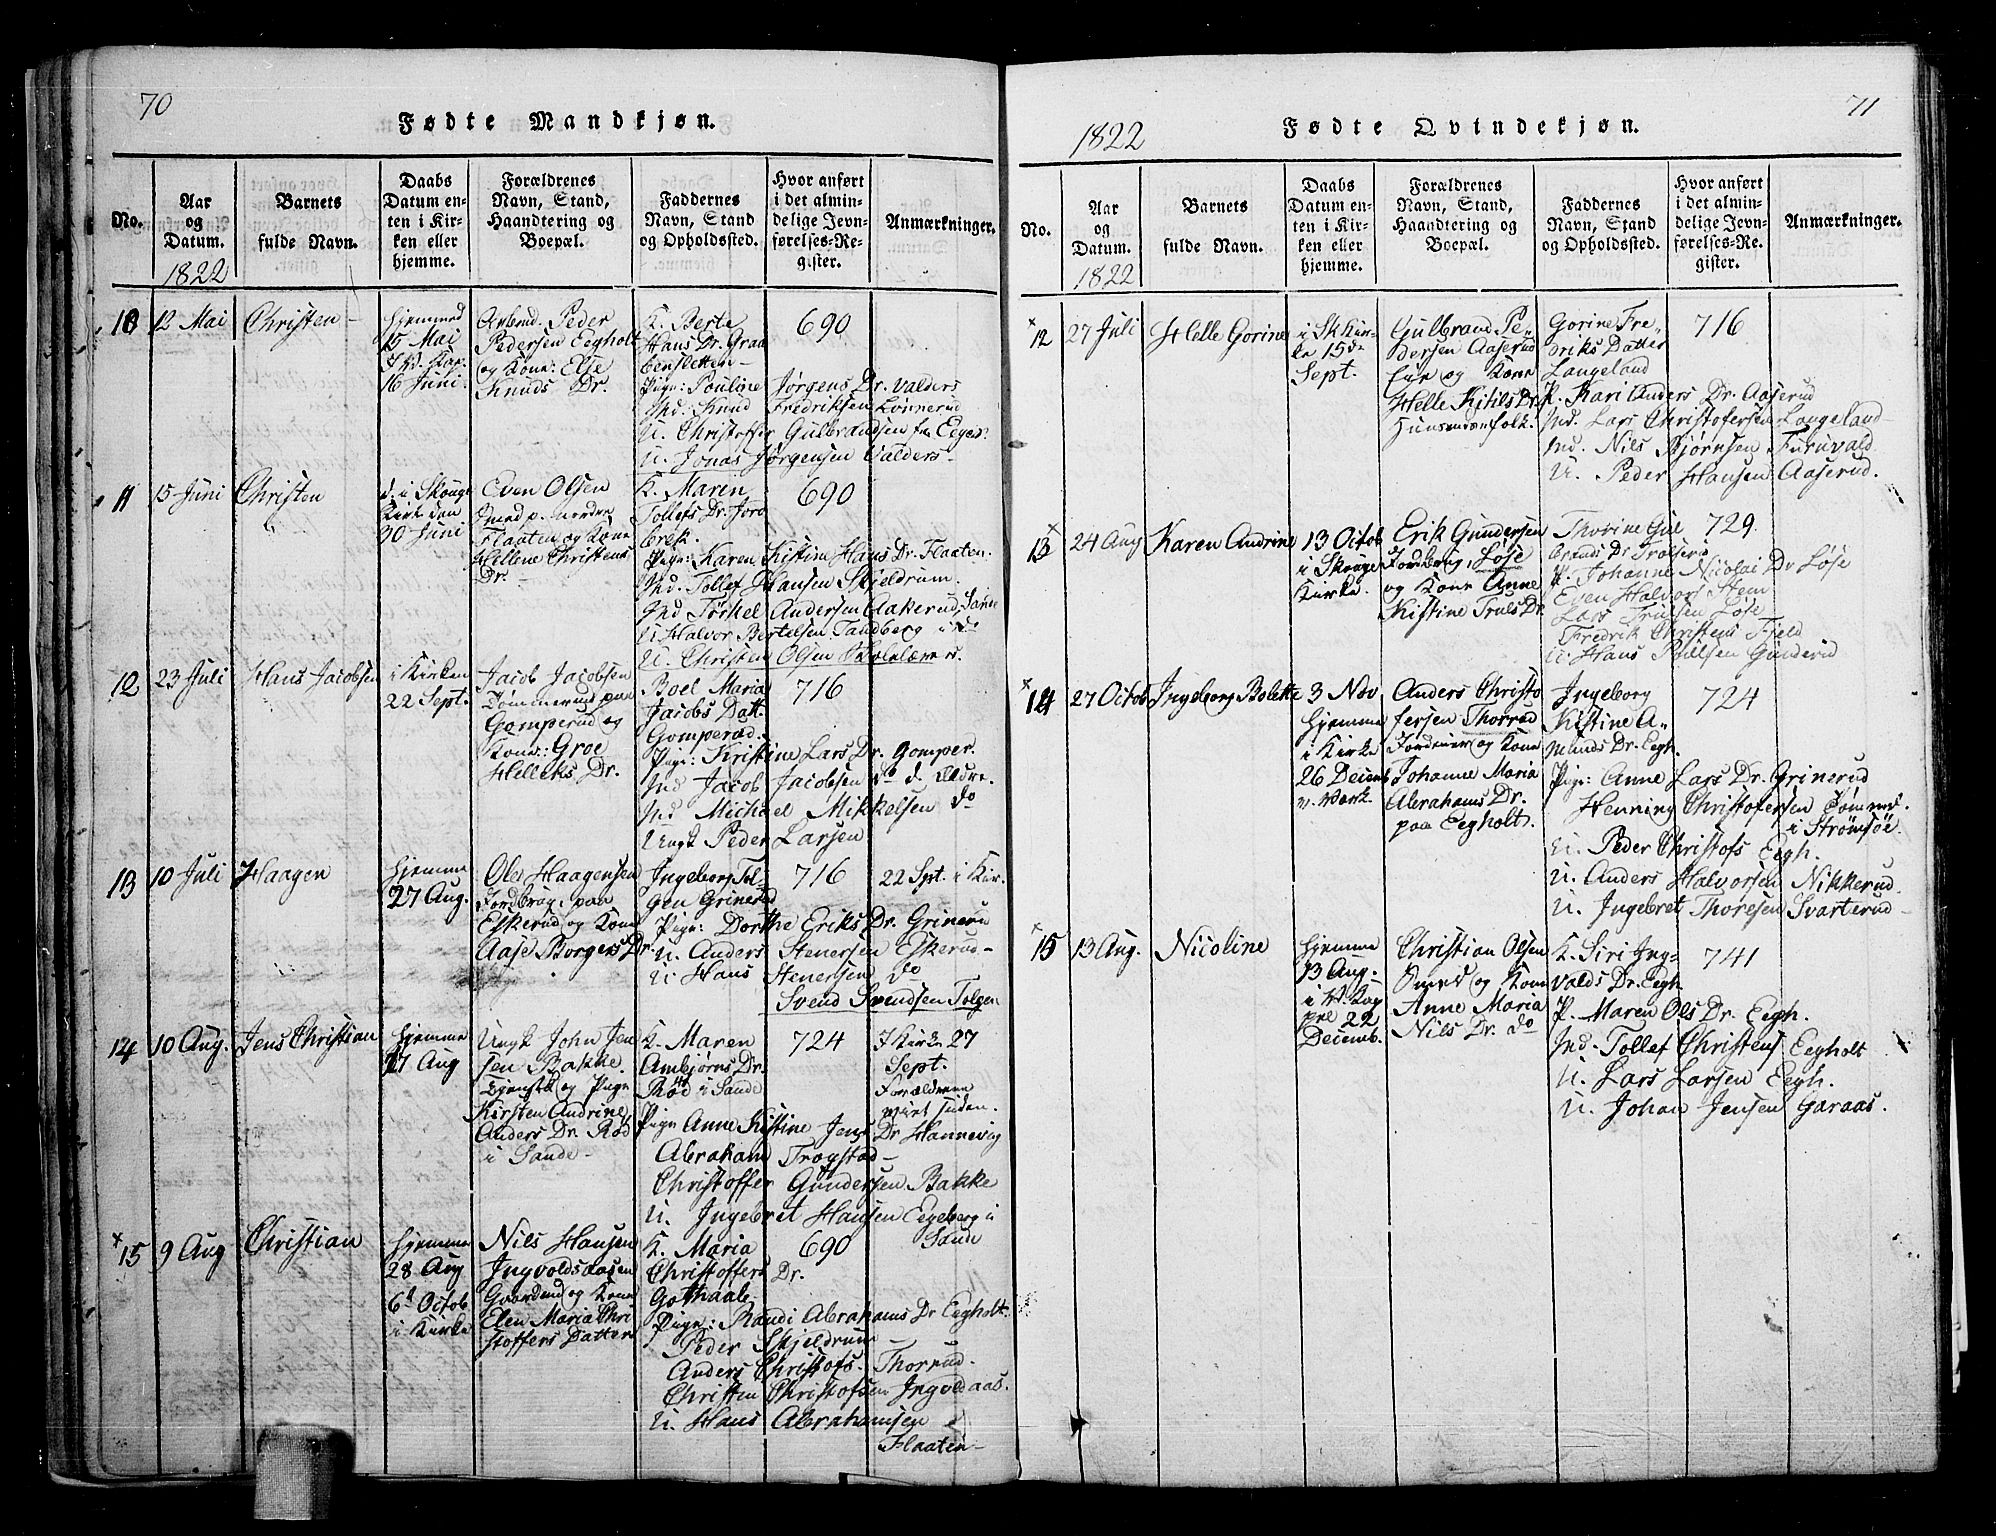 70
Fødte Mandkjøn.
No.
Aar
og
Datum.
1822
Barnets
fulde Navn.
Daabs
Datum en-
ten i Kir-
ken eller
hjemme.
Forældrenes
Navn, Stand,
Haandtering og
Boepæl.
Faddernes
Navn, Stand
og Opholdssted.
Hvor anført
i det almin-
delige Jevn-
førelses-Re-
gister.
Anmærkninger.
10
12 Mai
Christen
hjemmed
15 Mai
16 Juni
Peder
Pedersen Eegholt
og Kone: Else
Knuds Dr.
K. Berte
Hans Dr. Graa
bensletten
Pige: Pouline Jørgens Dr. Valders
Md: Knud Fredriksen Lønnerud
U. Christoffer Gulbrandsen
U. Jonas Jørgensen Valders
690
11
15 Juni
Christen
d. i Skouge
Kirke den
30 Juni
Even Olsen
Flaaten og Kone
Hellene Christens
Dr.
K. Maren
Tollefs Dr.
Pige: Karen Kistine Hans Dr. Flaaten.
Md. Tollef Hansen Skjeldrum.
Md Torkel Andersen Aakerud, Sande
U Halvor Bertelsen Tandberg i do
U. Christen Olsen
690
12
23 Juli
Hans Jacobsen
i Kirken
22 Sept.
Jacob Jacobsen
Tømmerud paa
Gomperud og
Kone: Groe
Helleks Dr.
Boel Maria
Jacobs Datt.
Gomperud.
Pige: Kristine Lars Dr. Gomper.
Md Jacob Jacobsen do d. Ældre.
Md Michael Mikkelsen do
Ungk Peder Larsen
716
13
10 Juli
Haagen
hjemme
27 Aug.
Ole Haagensen
Jordbrug. paa
Eskerud og Kone
Aase Borgers Dr.
Ingeborg Tol-
gen Grinerud
Pige: Dorthe Eriks Dr. Grinerud
U. Anders Stenersen Eskerud
U Hans Stenersen do
Svend Svendsen Tolgen
716
22 Spt. i Kir.
14
10 Aug.
Jens Christian
hjemme
27 Aug
Ungk John Jen
sen Bakke.
Tjenste og Pige
Kirsten Andrine
Anders Dr. Rød
i Sande
K. Maren
Ambjørns Dr.
Rød i Sande
Pige Anne Kistine Jens Dr Hannevig
Abraham Trogstad
Christoffer Gundersen Bakke
U. Ingebret Hansen Eegeberg i
Sande
724
I Kirke 27
Sept.
Forældrene
viet siden.
15
9 Aug
Christian
hjemme
28 Aug
6d Octob
i Kirke
Nils Hansen
Ingvoldsaasen
Gaardmd og Kone
Elen Maria Chri
stoffers Datter
K. Maria
Christoffers Dr.
Gothaab.
Pige: Randi Abrahams Dr Eegholt.
Peder Skjeldrum
Anders Christofs. Thorrud.
Christen Christofsen Ingvoldaas.
U. Hans Abrahamsen
Flaaten
690
71
1822
Fødte Qvindekjøn.
No.
Aar
og
Datum.
1822
Barnets
fulde Navn.
Daabs
Datum en-
ten i Kir-
ken eller
hjemme.
Forældrenes
Navn, Stand,
Haandtering og
Boepæl.
Faddernes
Navn, Stand
og Opholdssted.
Hvor anført
i det almin-
delige Jevn-
førelses-Re-
gister.
Anmærkninger.
12
27 Juli
Helle Gorine
i Sk Kir-
ke 15de
Sept.
Gulbrand Pe-
dersen Aaserud
Eie og Kone
Helle Kitils Dr.
Huusmandsfolk.
Gorine Fre-
driks Datter
Langeland
P. Kari Anders Dr. Aaserud
Md. Lars Christofersen Langeland
Md. Nils Bjørnsen Furuvald
U. Peder Hansen Aaserud.
716
13
24 Aug
Karen Andrine
13 Octob
i Skouge
Kirke.
Erik Gundersen
Jordbrug, Løse
og Kone Anne
Kistine Truls Dr.
Thorine Gul
brands Dr
P. Johanne Nicolai Dr Løse
Even Halvors Hem
Lars Trulsen Løse
Fredrik Christens Fjeld
U. Hans Poulsen Gunderud
729
14
27 Octob
Ingeborg Bolette
3 Nov
hjemme
i Kirke
26 Decemb
Anders Christo
fersen Thorrud
Jordeier og Kone
Johanne Maria
Abrahams Dr.
paa Eegholt.
Ingeborg
Kistine A-
munds Dr. Eegh.
Pige: Anne Lars Dr. Grinerud
Henning Christofersen Tømmd.
i Strømsøe.
U. Peder Christofs Eegh.
U. Anders Halvorsen Nikkerud.
U. Ingebret Thoresen Svarterud
724
15
13 Aug.
Nicoline
hjemme
13 Aug.
pel 22
Decemb.
Christian Olsen
Smed og Kone
Anne Maria
Nils Dr. do
K. Siri Ing-
valds Dr. Eegh
P. Maren Ols Dr. Eegh.
Md. Tollef Christens Eegholt
U. Lars Larsen Eegh.
U. Johan Jensen Garaas.
741